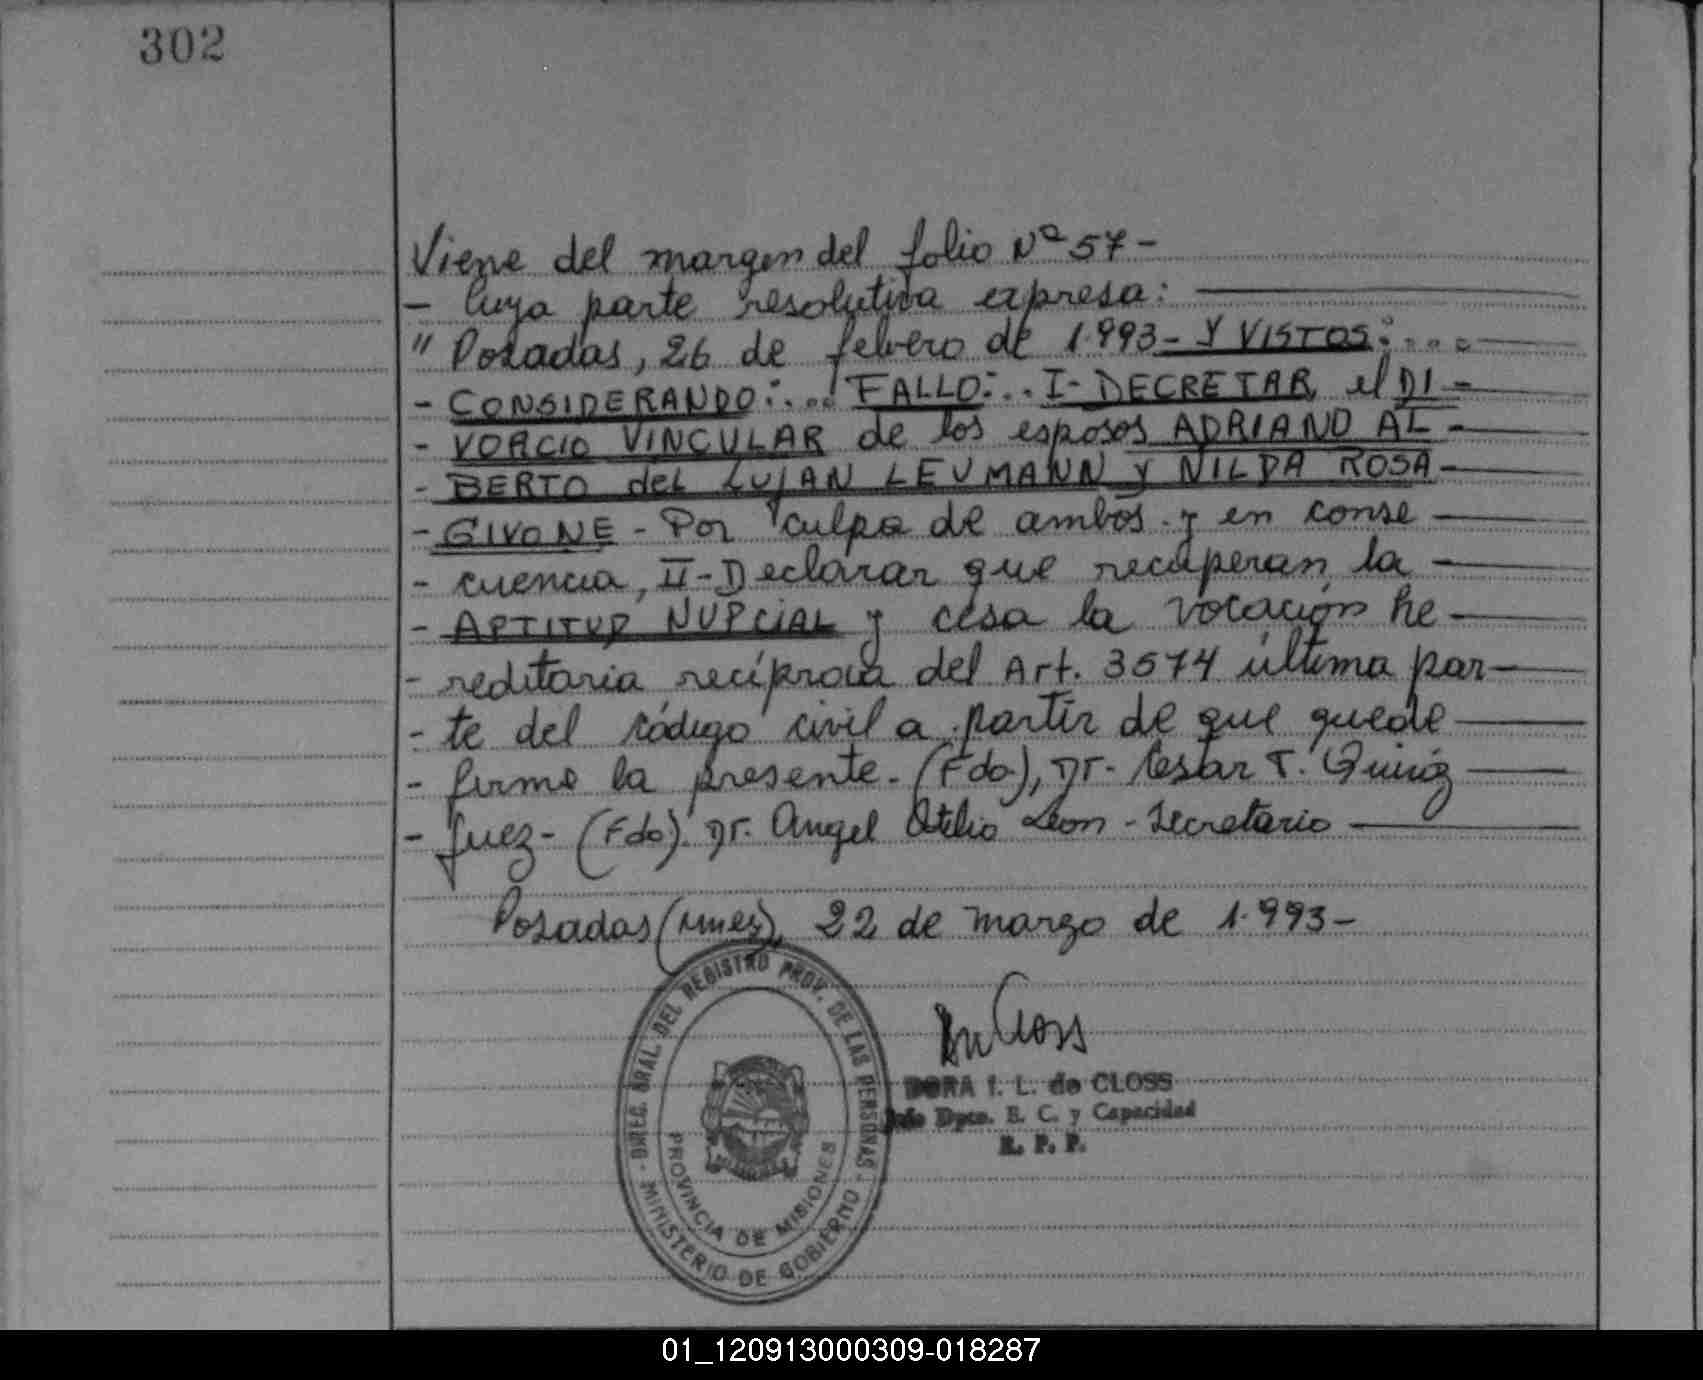 302
Viene del margen del folio Nº 57-
- Cuya parte resolutiva expresa:
" Posadas, 26 de febrero de 1.993- Y VISTOS:....
- CONSIDERANDO:.... FALLO:.. I- DECRETAR el DI-
- VORCIO VINCULAR de los esposos ADRIANO AL-
- BERTO del LUJAN LEUMANN y NILDA ROSA-
- GIVONE - Por culpa de ambos y en conse
- cuencia, II-Declarar que recuperan la
- APTITUD NUPCIAL y cesa la vocación he
- reditaria recíproca del Art. 3574 última par
- te del código civil a partir de que quede
- firme la presente. (Fdo), Dr. Cesar T.
- Juez- (Fdo). Dr. Angel Atilio Leon - Secretario
Posadas (Mnes), 22 de marzo de 1.993-
DIREC. GRAL. DEL REGISTRO PROV. DE LAS PERSONAS
PROVINCIA DE MISIONES
MINISTERIO DE GOBIERNO
DORA I. L. de CLOSS
Jefe Dpto. E. C. y Capacidad
R. P. P.
01_120913000309-018287